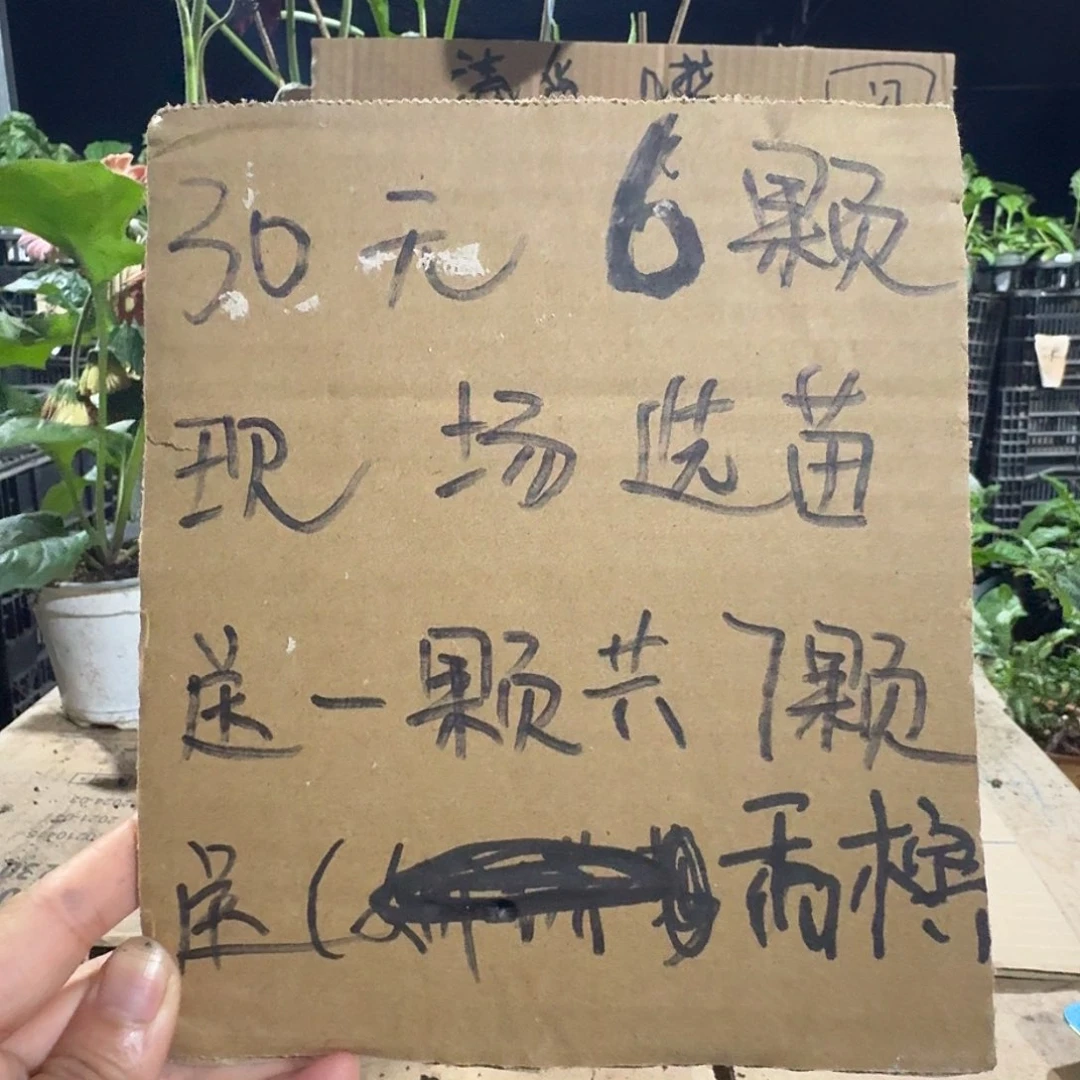 清货
30元 6颗
现场选苗
送一颗共7颗
送(